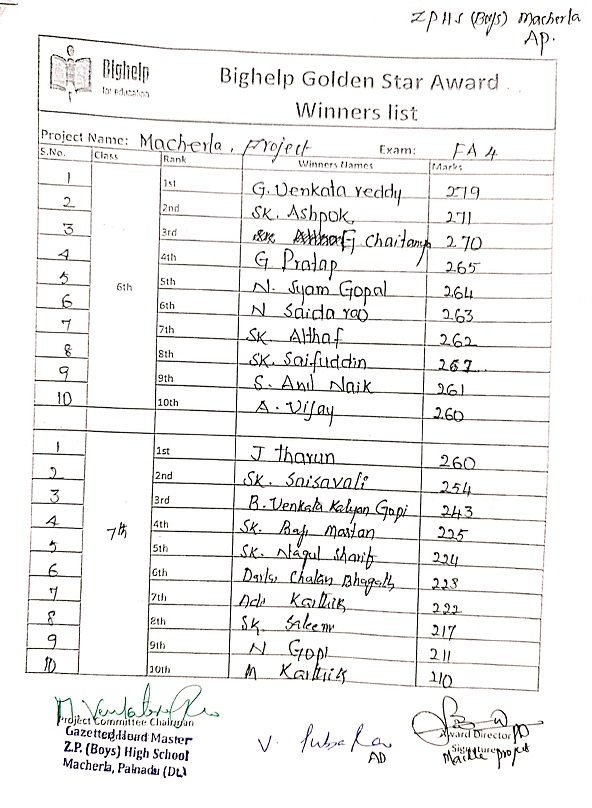 ZPHS (Boys) Macherla
AP.
Bighelp
for education
Bighelp Golden Star Award
Winners list
Project Name: Macherla. Project Exam: FA 4
S.No. Class Rank Winners Names Marks
1 1st G. Venkata reddy 279
2 2nd SK. Ashpok 271
3 3rd G Chaitanya 270
4 4th G Pratap 265
5 5th N. Syam Gopal 264
6 6th N Saida rao 263
7 7th SK. Althaf 262
8 8th SK. Saifuddin
9 9th S. Anil Naik 261
10 10th A. Vijay 260
6th
1 1st J tharun 260
2 2nd SK. Saisavali 254
3 3rd B. Venkata Kalyan Gopi 243
4 4th SK. Baji mastan 225
5 5th SK. Nagul Sharif 224
6 6th Chalan Bhagath 223
7 7th Karthik 222
8 8th SK. Saleem 217
9 9th N Gopi 211
10 10th M Karthik 210
7th
Project Committee Chairman
Gazetted Head Master
Z.P. (Boys) High School
Macherla, Palnadu (Dt.)
AD
Award Director PD
Signature
project